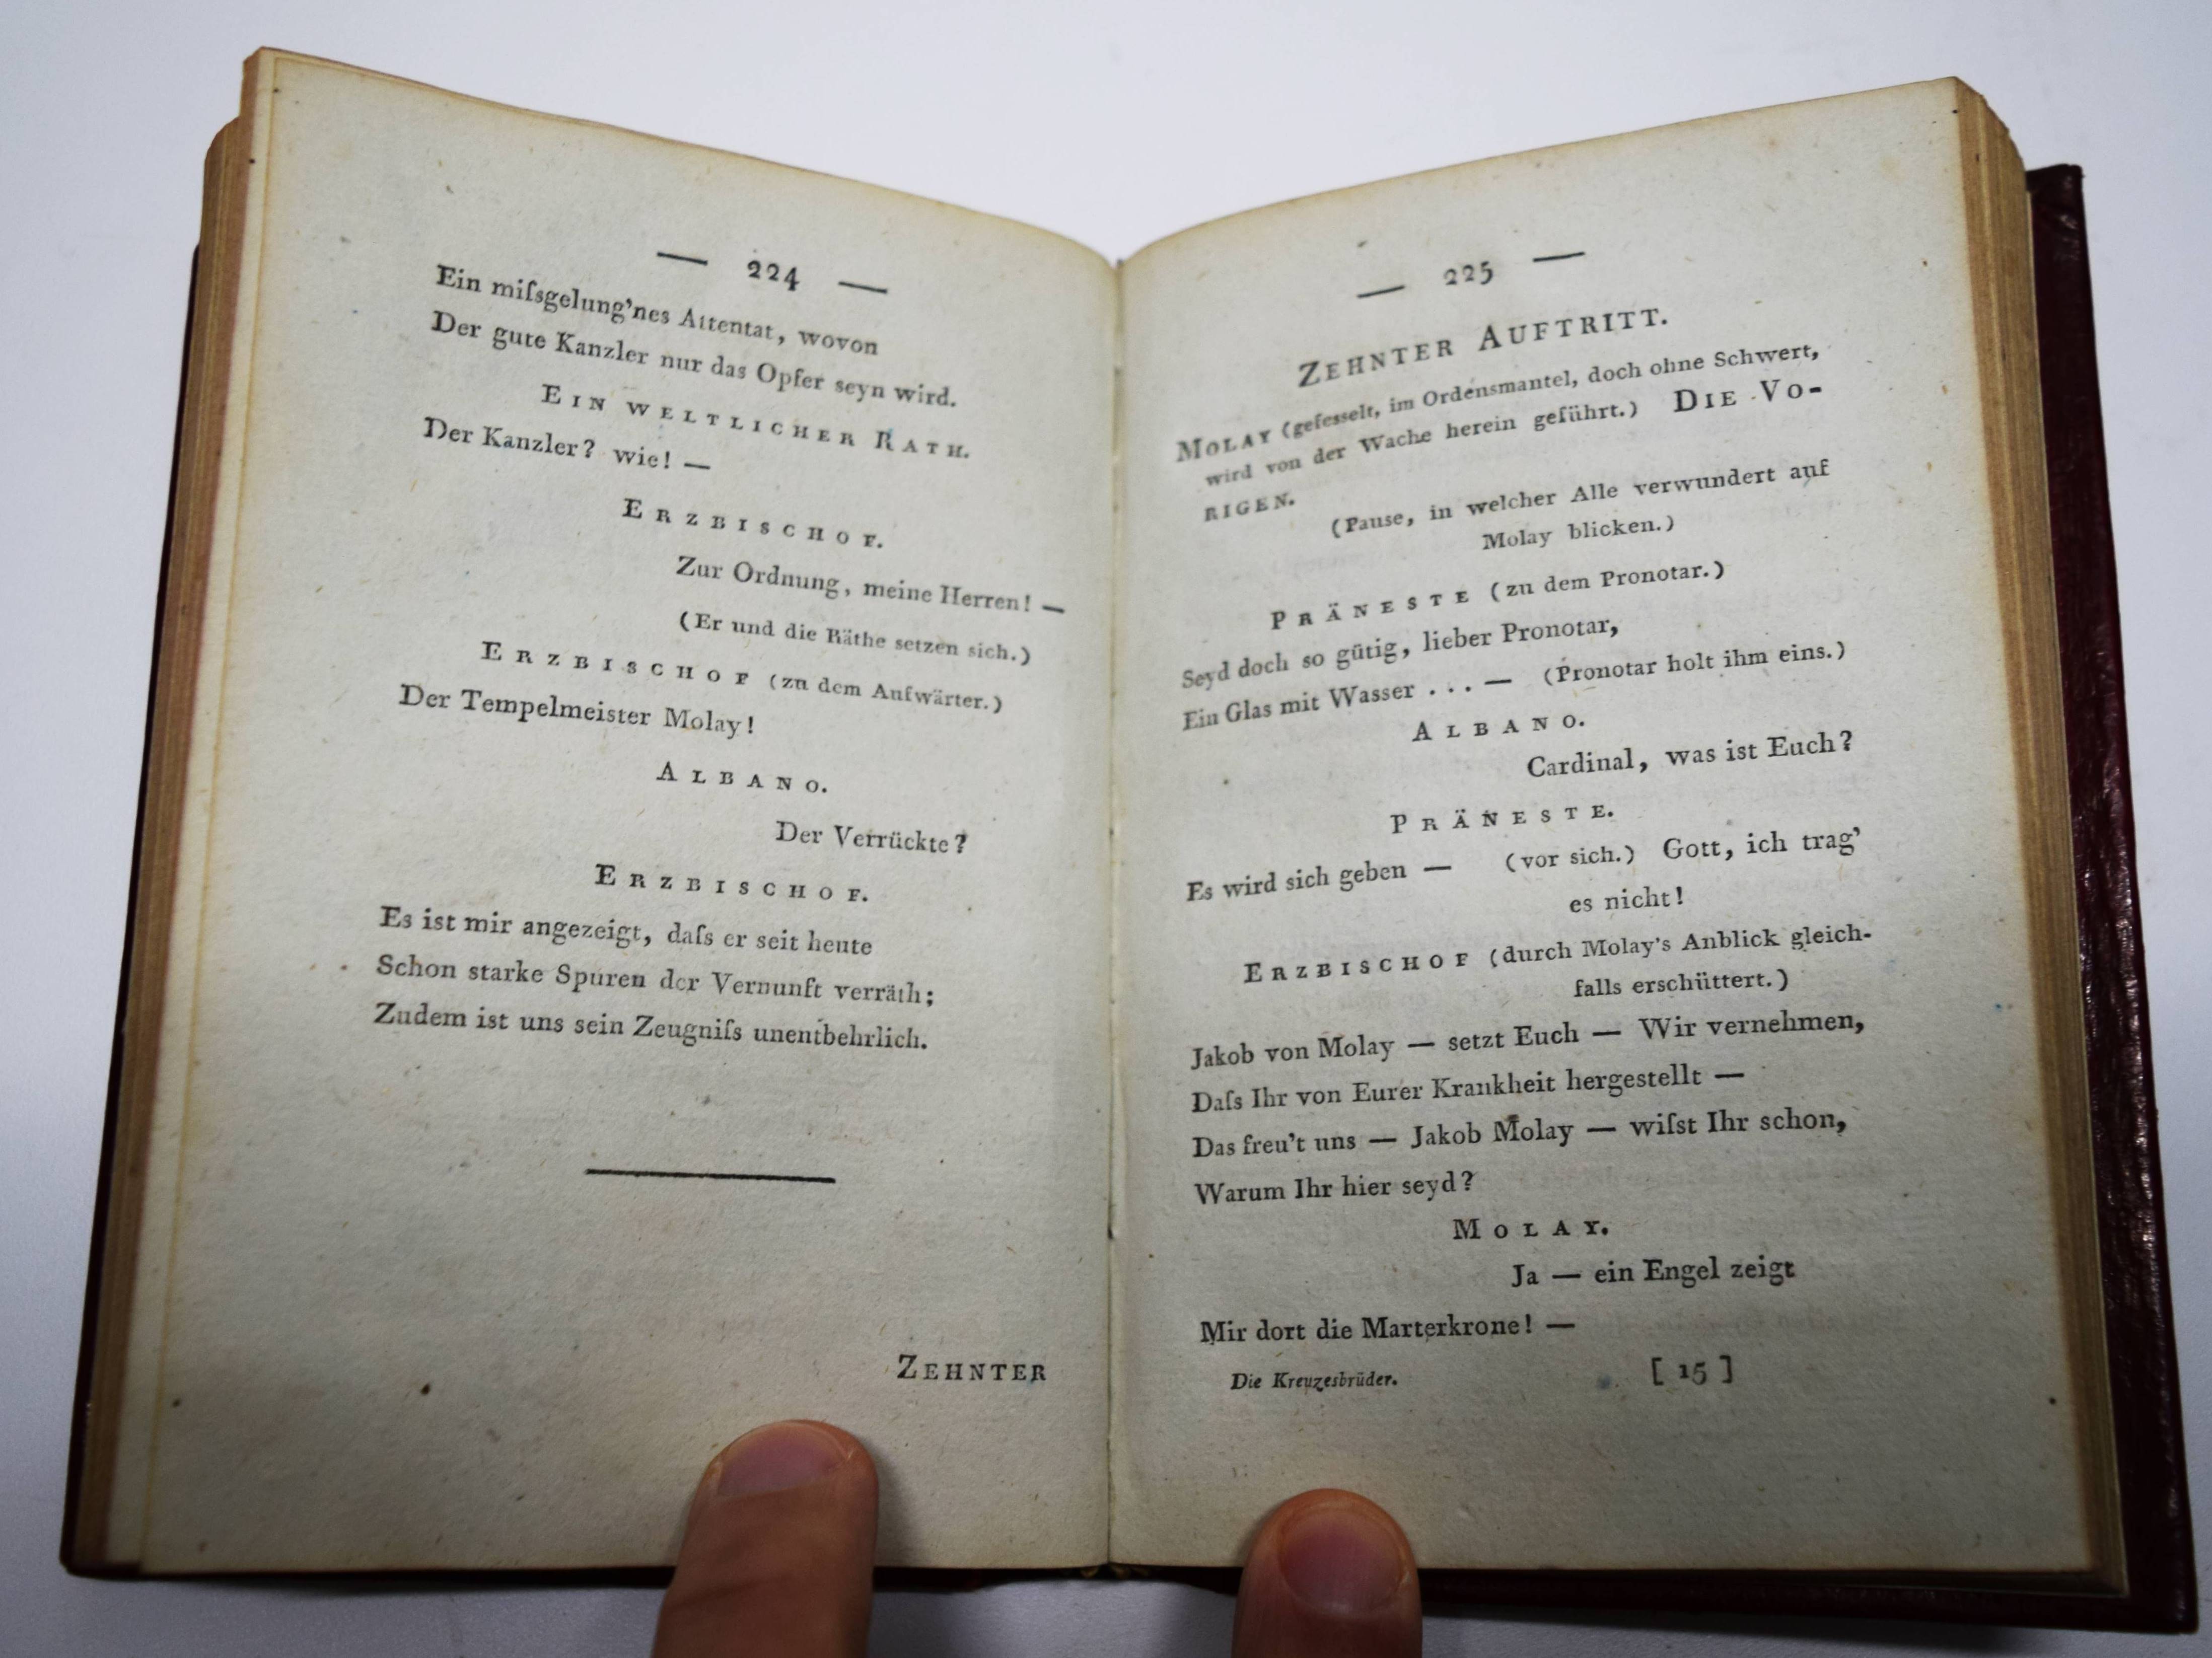 — 224 —
Ein miſsgelung'nes Attentat, wovon
Der gute Kanzler nur das Opfer seyn wird.
EIN WELTLICHER RATH.
Der Kanzler? wie! —
ERZBISCHOF.
Zur Ordnung, meine Herren! —
(Er und die Räthe setzen sich.)
ERZBISCHOF (zu dem Aufwärter.)
Der Tempelmeister Molay!
ALBANO.
Der Verrückte?
ERZBISCHOF.
Es ist mir angezeigt, daſs er seit heute
Schon starke Spuren der Vernunft verräth;
Zudem ist uns sein Zeugniſs unentbehrlich.
ZEHNTER
— 225 —
ZEHNTER AUFTRITT.
MOLAY (gefesselt, im Ordensmantel, doch ohne Schwert,
wird von der Wache herein geführt.) DIE VO-
RIGEN.
(Pause, in welcher Alle verwundert auf
Molay blicken.)
PRÄNESTE (zu dem Pronotar.)
Seyd doch so gütig, lieber Pronotar,
Ein Glas mit Wasser . . . — (Pronotar holt ihm eins.)
ALBANO.
Cardinal, was ist Euch?
PRÄNESTE.
Es wird sich geben — (vor sich.) Gott, ich trag'
es nicht!
ERZBISCHOF (durch Molay's Anblick gleich-
falls erschüttert.)
Jakob von Molay — setzt Euch — Wir vernehmen,
Daſs Ihr von Eurer Krankheit hergestellt —
Das freu't uns — Jakob Molay — wiſst Ihr schon,
Warum Ihr hier seyd?
MOLAY.
Ja — ein Engel zeigt
Mir dort die Marterkrone! —
Die Kreuzesbrüder. [ 15 ]